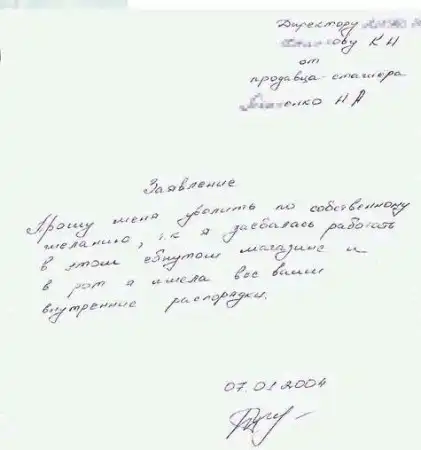 Директору
ову К Н
от
продавца-стажёра
енко Н А
Заявление
Прошу меня уволить по собственному
желанию, т.к я заебалась работать
в этом ебнутом магазине и
в рот я имела все ваши
внутренние распорядки.
07.01 2004